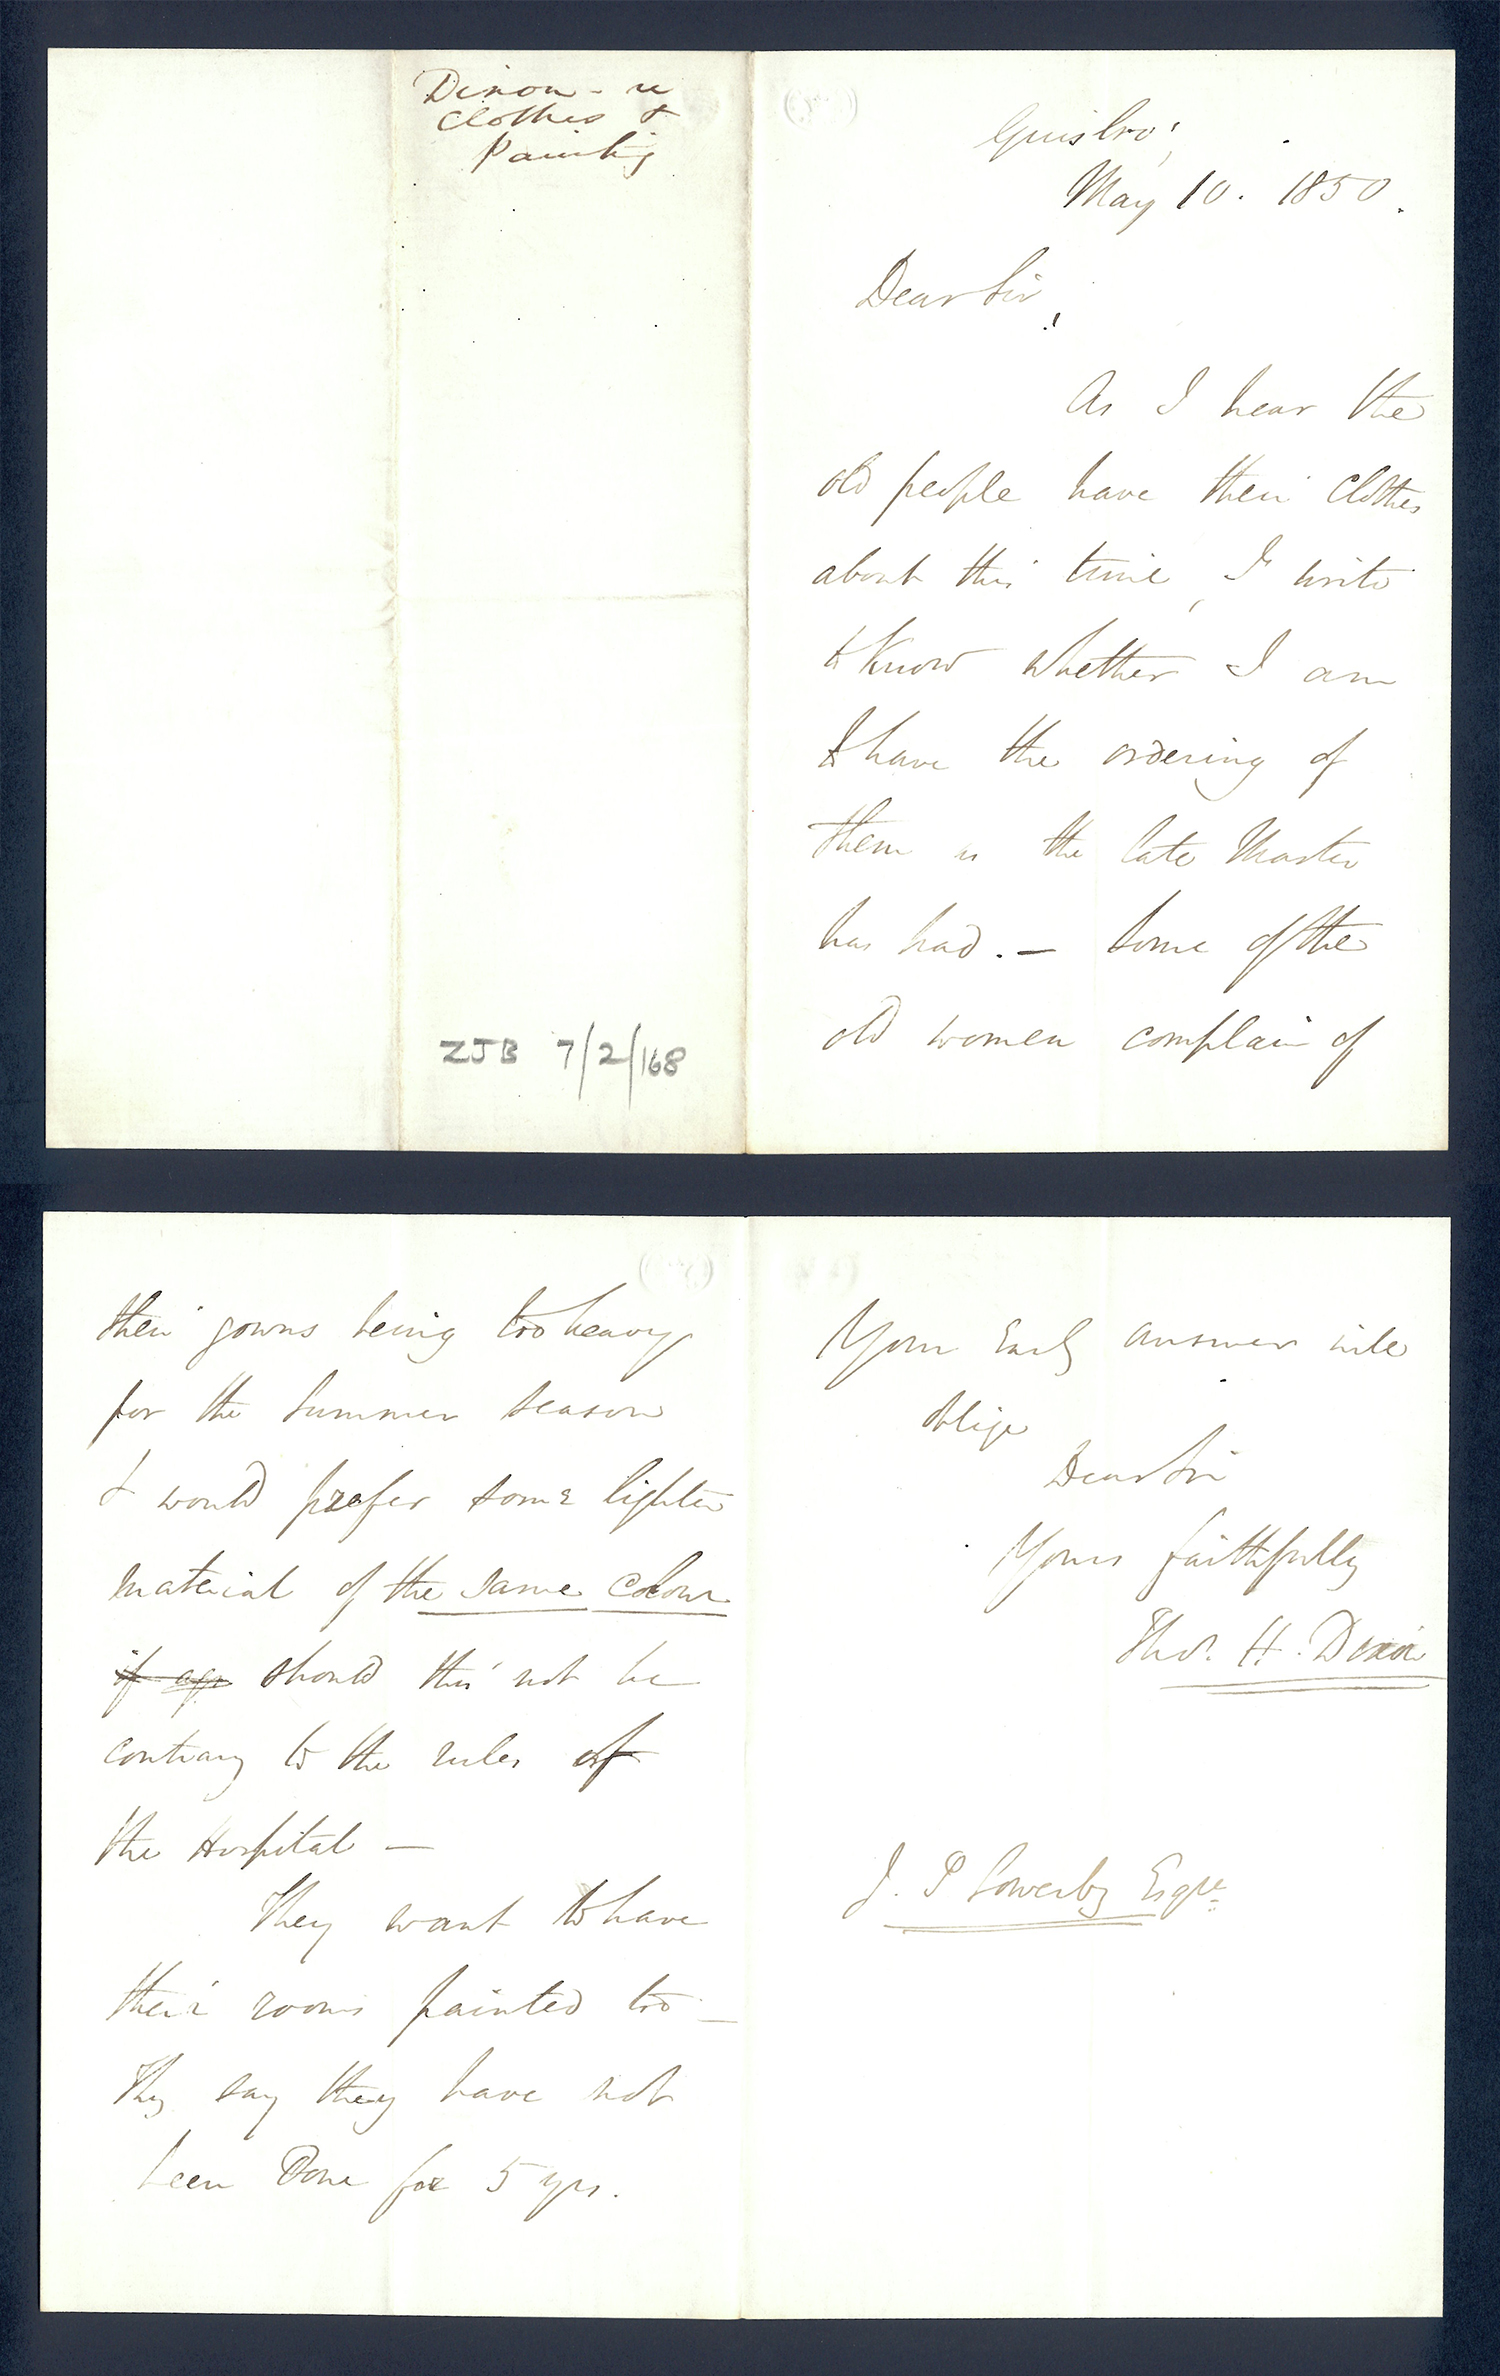 Dixon - re
Clothes &
Painting
ZJB 7/2/168
Guisbro'
May 10. 1850.
Dear Sir,
As I hear the
old people have their clothes
about this time, I write
to know whether I am
to have the ordering of
them as the late Master
has had. — Some of the
old women complain of
their gowns being too heavy
for the summer season
& would prefer some lighter
material of the same colour
if ag should this not be
contrary to the rules of
the Hospital —
They want to have
their rooms painted too —
They say they have not
been done for 5 yrs.
Your early answer will
oblige
Dear Sir
Yours faithfully
Thos. H. Dixon
J. P Sowerby Esqre